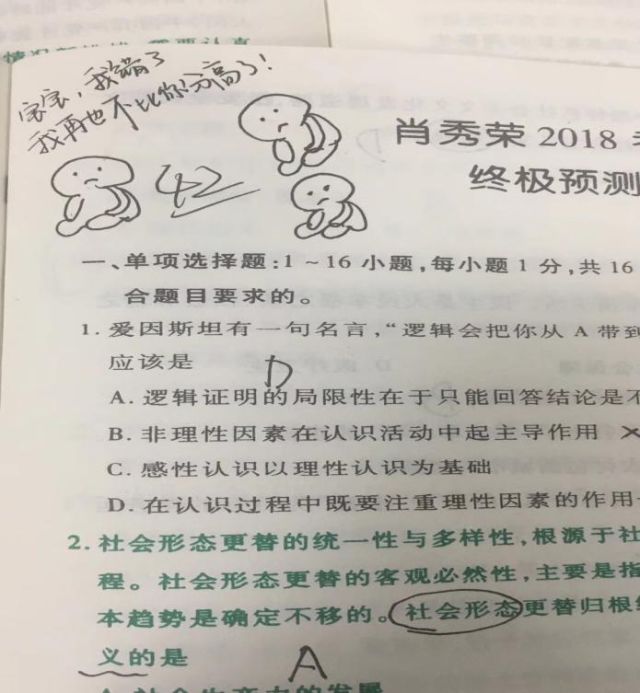 宝宝，我错了
我再也不比你分高了！
42
肖秀荣 2018
终极预测
一、单项选择题：1～16 小题，每小题 1 分，共 16
合题目要求的。
1. 爱因斯坦有一句名言，“逻辑会把你从 A 带到
应该是 D
A. 逻辑证明的局限性在于只能回答结论是
B. 非理性因素在认识活动中起主导作用 ×
C. 感性认识以理性认识为基础
D. 在认识过程中既要注重理性因素的作用
2. 社会形态更替的统一性与多样性，根源于社
程。社会形态更替的客观必然性，主要是指
本趋势是确定不移的。社会形态更替归根
义的是 A